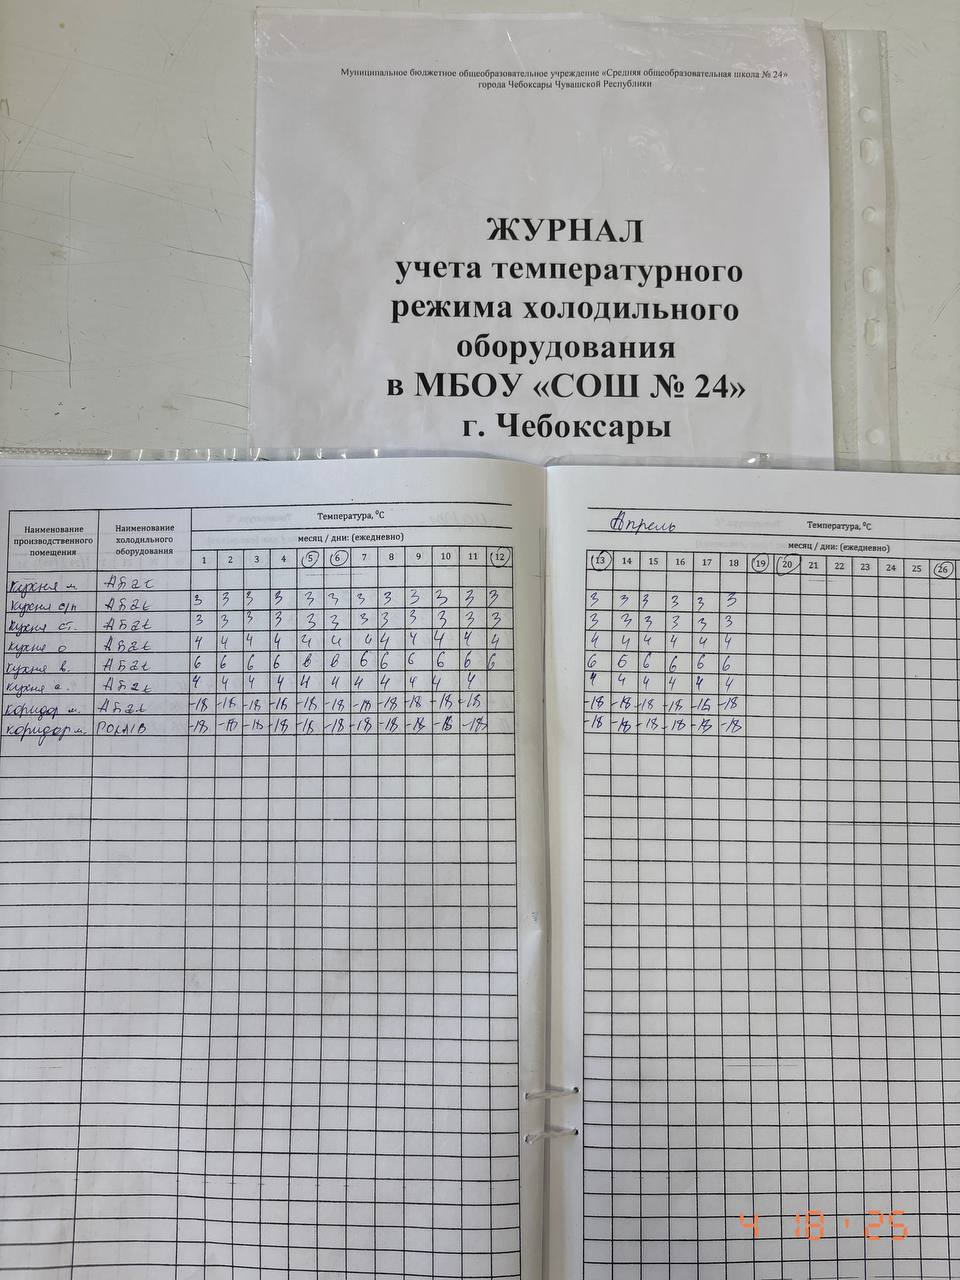 Муниципальное бюджетное общеобразовательное учреждение «Средняя общеобразовательная школа № 24»
города Чебоксары Чувашской Республики
ЖУРНАЛ
учета температурного
режима холодильного
оборудования
в МБОУ «СОШ № 24»
г. Чебоксары
Наименование производственного помещения Наименование холодильного оборудования Температура, ⁰С
месяц / дни: (ежедневно)
1 2 3 4 5 6 7 8 9 10 11 12
Кухня м. Абат
Кухня с/п Абат 3 3 3 3 3 3 3 3 3 3 3 3
Кухня ст. Абат 3 3 3 3 3 3 3 3 3 3 3 3
Кухня о Абат 4 4 4 4 4 4 4 4 4 4 4 4
Кухня в. Абат 6 6 6 6 6 6 6 6 6 6 6 6
Кухня Абат 4 4 4 4 4 4 4 4 4 4 4
Коридор м. Абат -18 -18 -18 -18 -18 -18 -18 -18 -18 -18 -18
Коридор м. -18 -18 -18 -18 -18 -18 -18 -18 -18 -18 -18
Апрель Температура, ⁰С
месяц / дни: (ежедневно)
13 14 15 16 17 18 19 20 21 22 23 24 25 26
3 3 3 3 3 3
3 3 3 3 3 3
4 4 4 4 4 4
6 6 6 6 6 6
4 4 4 4 4 4
-18 -18 -18 -18 -18 -18
-18 -18 -18 -18 -18 -18
4 18 ' 25